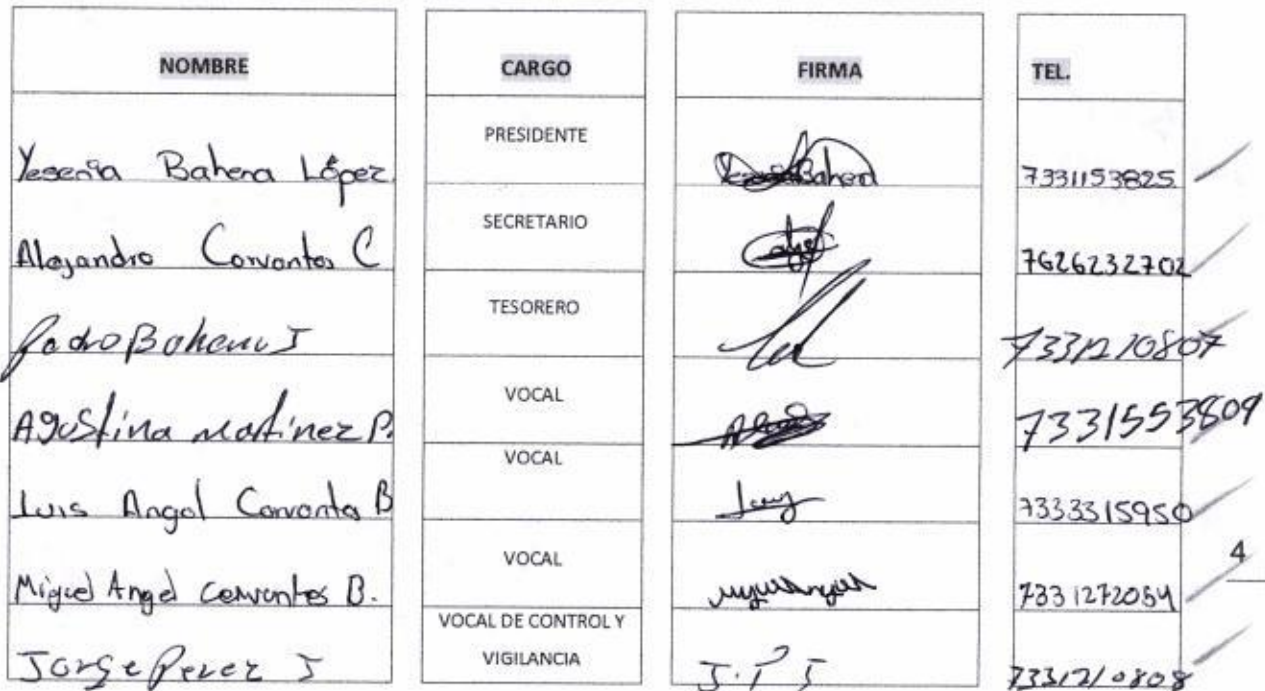 NOMBRE CARGO FIRMA TEL.
Yesenia Bahena López PRESIDENTE Bahena 7331153825
Alejandro Cervantes C SECRETARIO 7626232702
Pedro Bahena J TESORERO 7331210807
Agustina Martinez P. VOCAL 7331553809
Luis Angel Cervantes B VOCAL 7333315950
Miguel Angel Cervantes B. VOCAL 7331272054
4
Jorge Perez J VOCAL DE CONTROL Y VIGILANCIA J.P J 7331210808